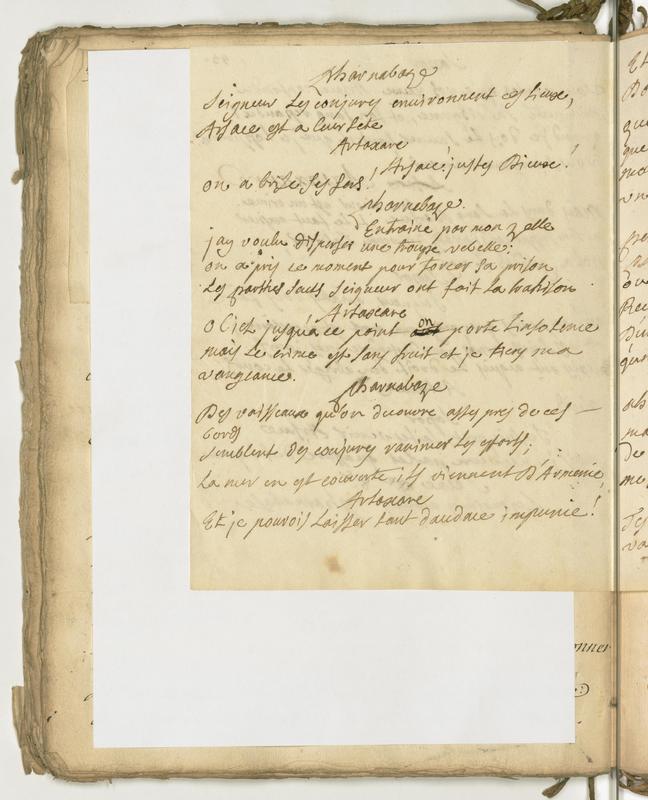 Pharnabaze
Seigneur Les conjures environnent ces Lieux,
Arsace est a leur tete
Artaxare
on a brisé Ses fers! Arsace! justes Dieux!
Pharnabaze.
Entrainé par mon zelle
j'ay voulu disperser une troupe rebelle:
on a pris ce moment pour forcer Sa prison
Les parthes Seuls Seigneur ont fait La trahison
Artaxare
O Ciel jusqu'à ce point on porte L'insolence
mais Le crime est sans fruit et je tiens ma
vangeance.
Pharnabaze
Des vaisseaux qu'on decouvre assez pres de ces
bords
Semblent des conjures ranimer Les efforts;
La mer en est couverte, ils viennent D'Armenie,
Artaxare
Et je pourois Laisser tant d'audace impunie!
onner